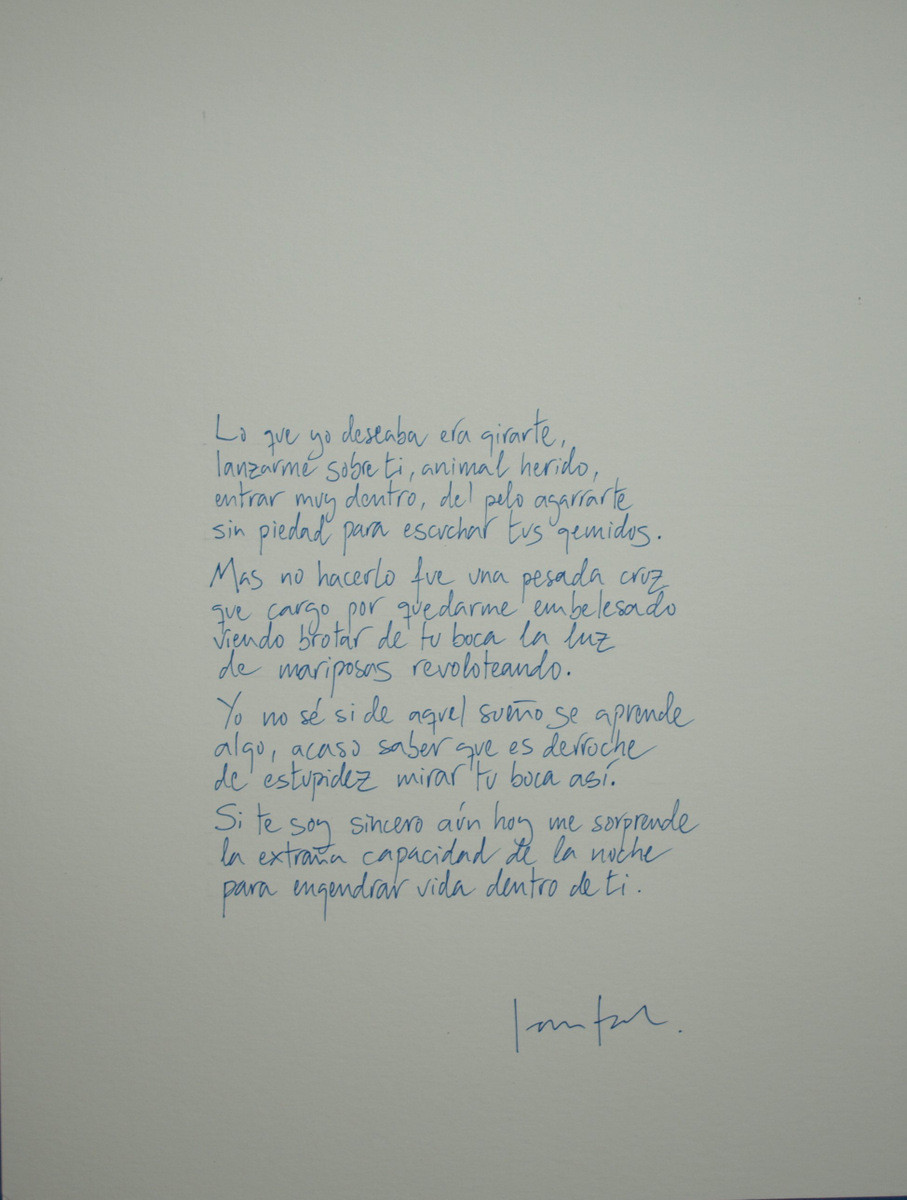 Lo que yo deseaba era girarte,
lanzarme sobre ti, animal herido,
entrar muy dentro, del pelo agarrarte
sin piedad para escuchar tus gemidos.
Mas no hacerlo fue una pesada cruz
que cargo por quedarme embelesado
viendo brotar de tu boca la luz
de mariposas revoloteando.
Yo no sé si de aquel sueño se aprende
algo, acaso saber que es derroche
de estupidez mirar tu boca así.
Si te soy sincero aún hoy me sorprende
la extraña capacidad de la noche
para engendrar vida dentro de ti.